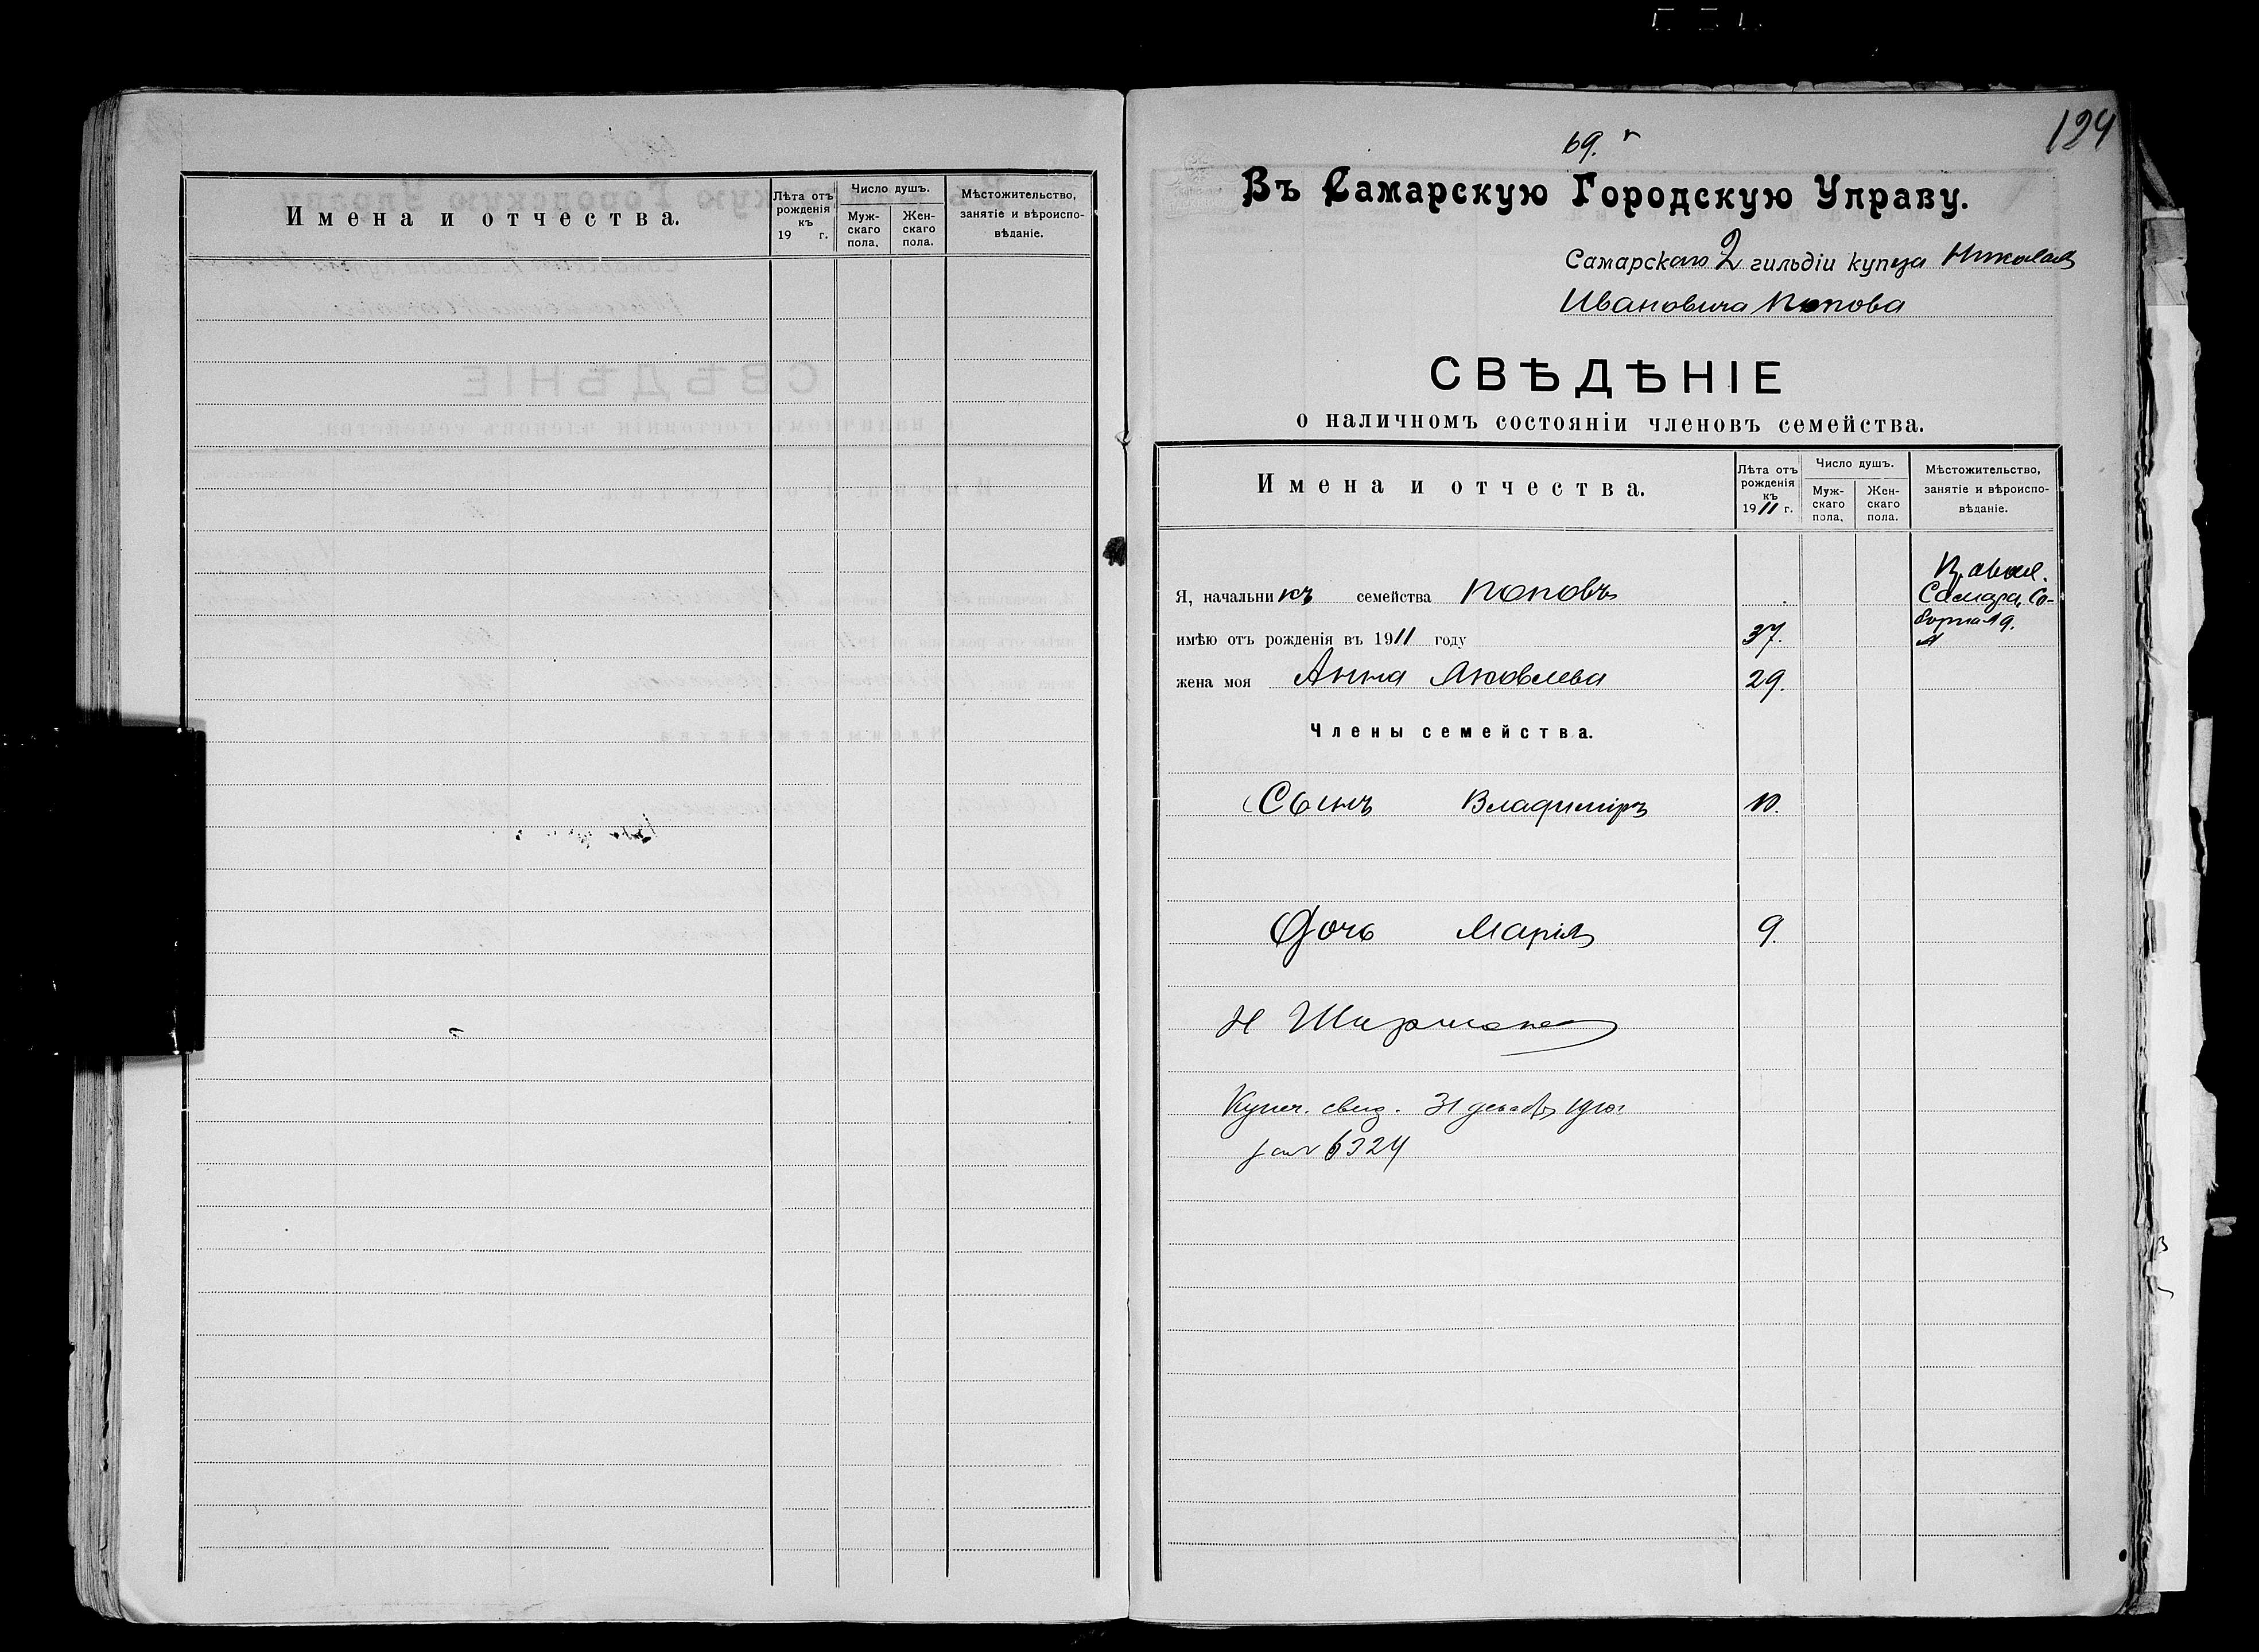 Имена и отчества.
Лѣта отъ рожденія къ 19 г.
Число душъ.
Мужскаго пола.
Женскаго пола.
Мѣстожительство, занятіе и вѣроисповѣданіе.
124
69.
Въ Самарскую Городскую Управу.
Самарскаго 2 гильдіи купца Николая
Ивановича Попова
СВѢДѢНІЕ
о наличномъ состояніи членовъ семейства.
Имена и отчества.
Лѣта отъ рожденія къ 1911 г.
Число душъ.
Мужскаго пола.
Женскаго пола.
Мѣстожительство, занятіе и вѣроисповѣданіе.
Я, начальникъ семейства Поповъ
Самара, Со-
борная 19.
имѣю отъ рожденія въ 1911 году 37.
жена моя Анна Яковлева 29.
Члены семейства.
Сынъ Владиміръ
Дочь Марія 9.
Купеч. свид. 31 декабря 1910 г
за № 6324